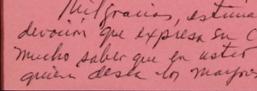 Mil gracias, estima
devoción que expresa su C
mucho saber que en usted
quien desea los mayores